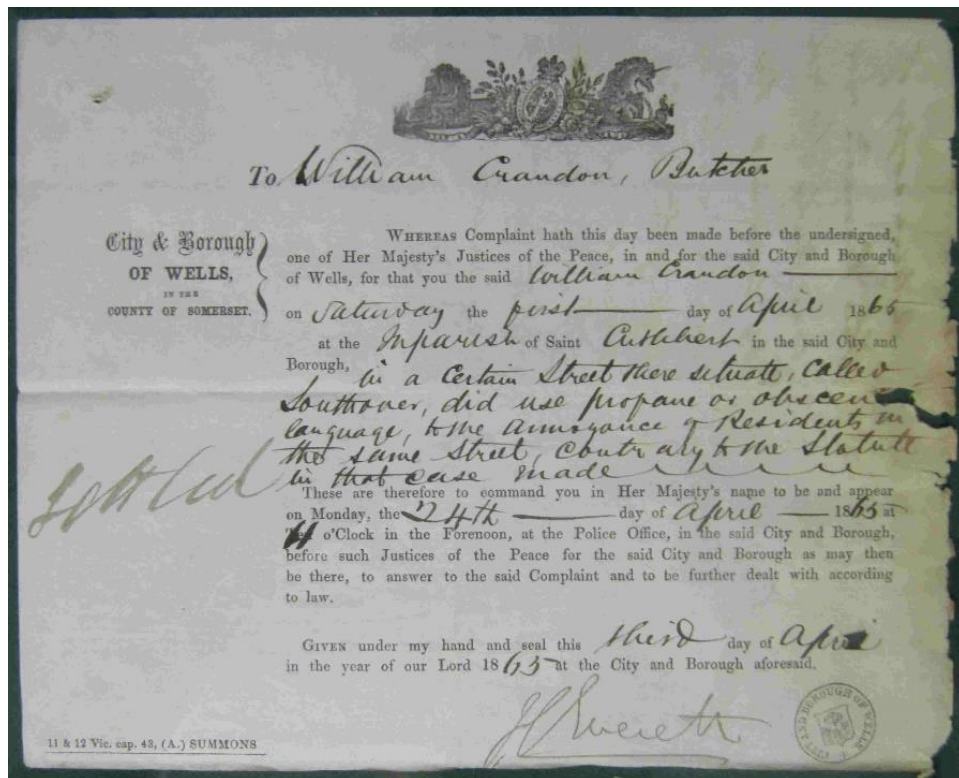 To William Crandon, Butcher
City & Borough
OF WELLS,
IN THE
COUNTY OF SOMERSET.
WHEREAS Complaint hath this day been made before the undersigned,
one of Her Majesty's Justices of the Peace, in and for the said City and Borough
of Wells, for that you the said William Crandon
on Saturday the first day of April 1865
at the Inparish of Saint Cuthbert in the said City and
Borough,
in a Certain Street there situate, called
Southover, did use profane or obscene
language, to the annoyance of Residents in
the same Street, contrary to the Statute
in that case made
Settled
These are therefore to command you in Her Majesty's name to be and appear
on Monday, the 24th day of April 1865 at
11 o'Clock in the Forenoon, at the Police Office, in the said City and Borough,
before such Justices of the Peace for the said City and Borough as may then
be there, to answer to the said Complaint and to be further dealt with according
to law.
GIVEN under my hand and seal this third day of April
in the year of our Lord 1865 at the City and Borough aforesaid.
Everett
CITY AND BOROUGH OF WELLS
11 & 12 Vic. cap. 43, (A.) SUMMONS